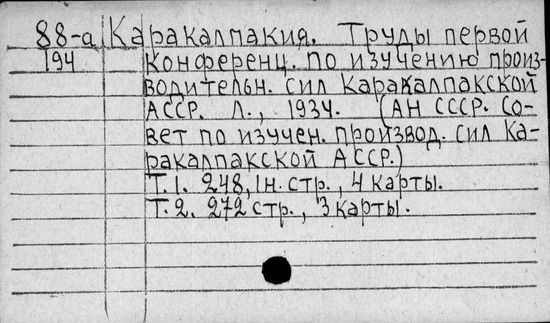 88-а Каракалпакия. Труды первой
194 Конференц. по изучению произ-
водительн. сил Каракалпакской
АССР. Л., 1934. (АН СССР. Со-
вет по изучен. производ. сил Ка-
ракалпакской АССР.)
Т.1. 248, 1н. стр., 4 карты.
Т.2. 272 стр., 3 карты.